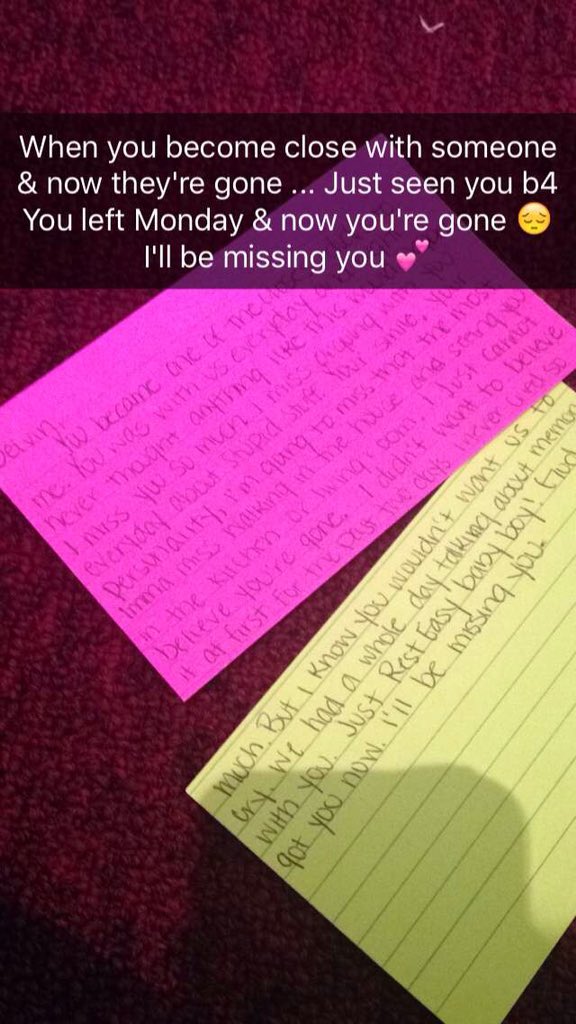 When you become close with someone
& now they're gone ... Just seen you b4
You left Monday & now you're gone 😔
I'll be missing you 💕
You became one of the
me. You was with us everyday
never thought anything like this
I miss you so much. I miss arguing with you
everyday about stupid stuff. Your smile, your
personality, i'm going to miss that the most
Imma miss walking in the house and seeing you
in the kitchen or living room. I just cannot
believe you're gone. I didn't want to believe
it at first for the past two days. never cried so
much But I know you wouldn't want us to
cry. We had a whole day talking about memor
with you. Just Rest Easy baby boy! God
got you now. i'll be missing you.